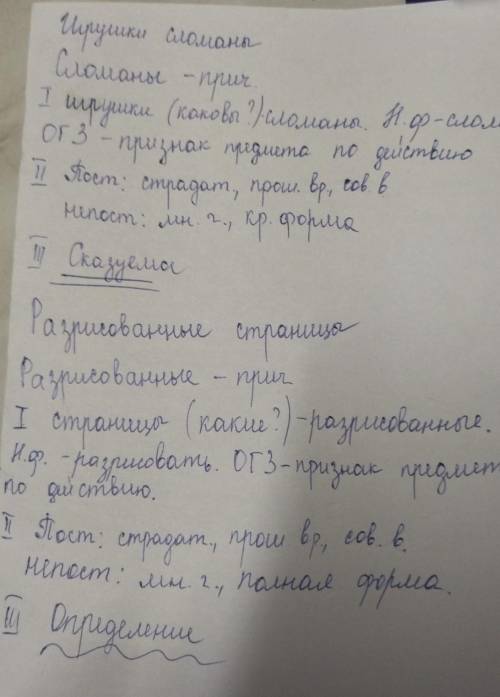 Игрушки сломаны
Сломаны - прич.
I игрушки (каковы?)-сломаны. Н.ф-слом
ОГЗ - признак предмета по действию
II Пост: страдат., прош. вр., сов. в.
Непост: мн. г., кр. форма
III Сказуемое
Разрисованные страницы
Разрисованные - прич
I страницы (какие?)-разрисованные.
Н.ф. - разрисовать. ОГЗ-признак предмет
по действию.
II Пост: страдат., прош. вр., сов. в.
Непост: мн. г., полная форма.
III Определение